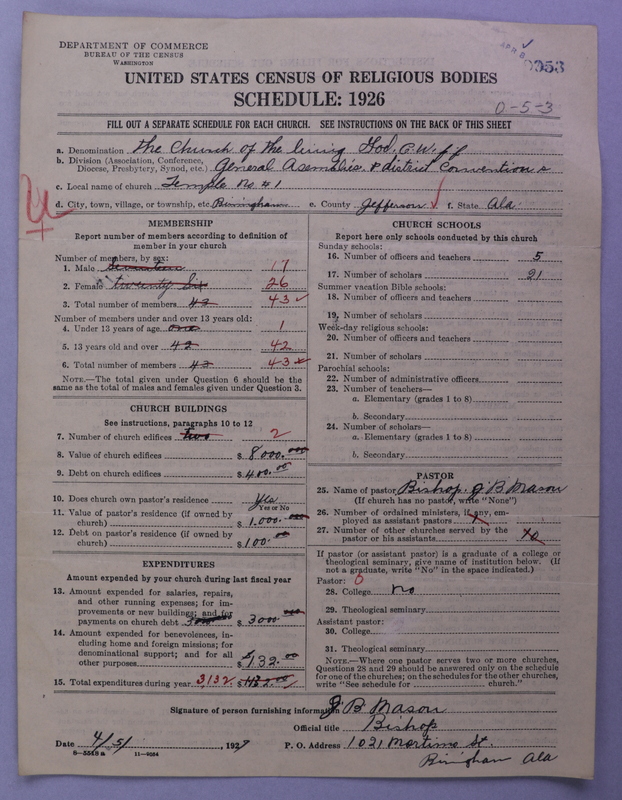 DEPARTMENT OF COMMERCE
BUREAU OF THE CENSUS
WASHINGTON
APR 8
0353
UNITED STATES CENSUS OF RELIGIOUS BODIES
SCHEDULE: 1926
0-5-3
FILL OUT A SEPARATE SCHEDULE FOR EACH CHURCH. SEE INSTRUCTIONS ON THE BACK OF THIS SHEET
a. Denomination The Church of the living God, C.W.f.f
b. Division (Association, Conference,
Diocese, Presbytery, Synod, etc.) General Asemblies & district Convention
c. Local name of church Temple No. 41
d. City, town, village, or township, etc. Birmingham e. County Jefferson f. State Ala.
MEMBERSHIP
Report number of members according to definition of
member in your church
Number of members, by sex:
1. Male Seventeen 17
2. Female twenty Six 26
3. Total number of members 43 43
Number of members under and over 13 years old:
4. Under 13 years of age one 1
5. 13 years old and over 42 42
6. Total number of members 43 43
NOTE.—The total given under Question 6 should be the
same as the total of males and females given under Question 3.
CHURCH BUILDINGS
See instructions, paragraphs 10 to 12
7. Number of church edifices two 2
8. Value of church edifices $ 8000.00
9. Debt on church edifices $ 400.00
10. Does church own pastor's residence Yes
Yes or No
11. Value of pastor's residence (if owned by
church) $ 1.000.00
12. Debt on pastor's residence (if owned by
church) $ 100.00
EXPENDITURES
Amount expended by your church during last fiscal year
13. Amount expended for salaries, repairs,
and other running expenses; for im-
provements or new buildings; and for
payments on church debt $ 3000
14. Amount expended for benevolences, in-
cluding home and foreign missions; for
denominational support; and for all
other purposes $ 132.00
15. Total expenditures during year 3,132. $
CHURCH SCHOOLS
Report here only schools conducted by this church
Sunday schools:
16. Number of officers and teachers 5
17. Number of scholars 21
Summer vacation Bible schools:
18. Number of officers and teachers
19. Number of scholars
Week-day religious schools:
20. Number of officers and teachers
21. Number of scholars
Parochial schools:
22. Number of administrative officers
23. Number of teachers—
a. Elementary (grades 1 to 8)
b. Secondary
24. Number of scholars—
a. Elementary (grades 1 to 8)
b. Secondary
PASTOR
25. Name of pastor Bishop. J B Mason
(If church has no pastor, write "None")
26. Number of ordained ministers, if any, em-
ployed as assistant pastors x
27. Number of other churches served by the
pastor or his assistants
If pastor (or assistant pastor) is a graduate of a college or
theological seminary, give name of institution below. (If
not a graduate, write "No" in the space indicated.)
Pastor: 0
28. College no
29. Theological seminary
Assistant pastor:
30. College
31. Theological seminary
NOTE.—Where one pastor serves two or more churches,
Questions 28 and 29 should be answered only on the schedule
for one of the churches; on the schedules for the other churches,
write "See schedule for church."
Signature of person furnishing information J B Mason
Official title Bishop
Date 4/5/, 1927 P. O. Address 1021 Mortimo St.
8—5548 a 11—9064
Biringham Ala